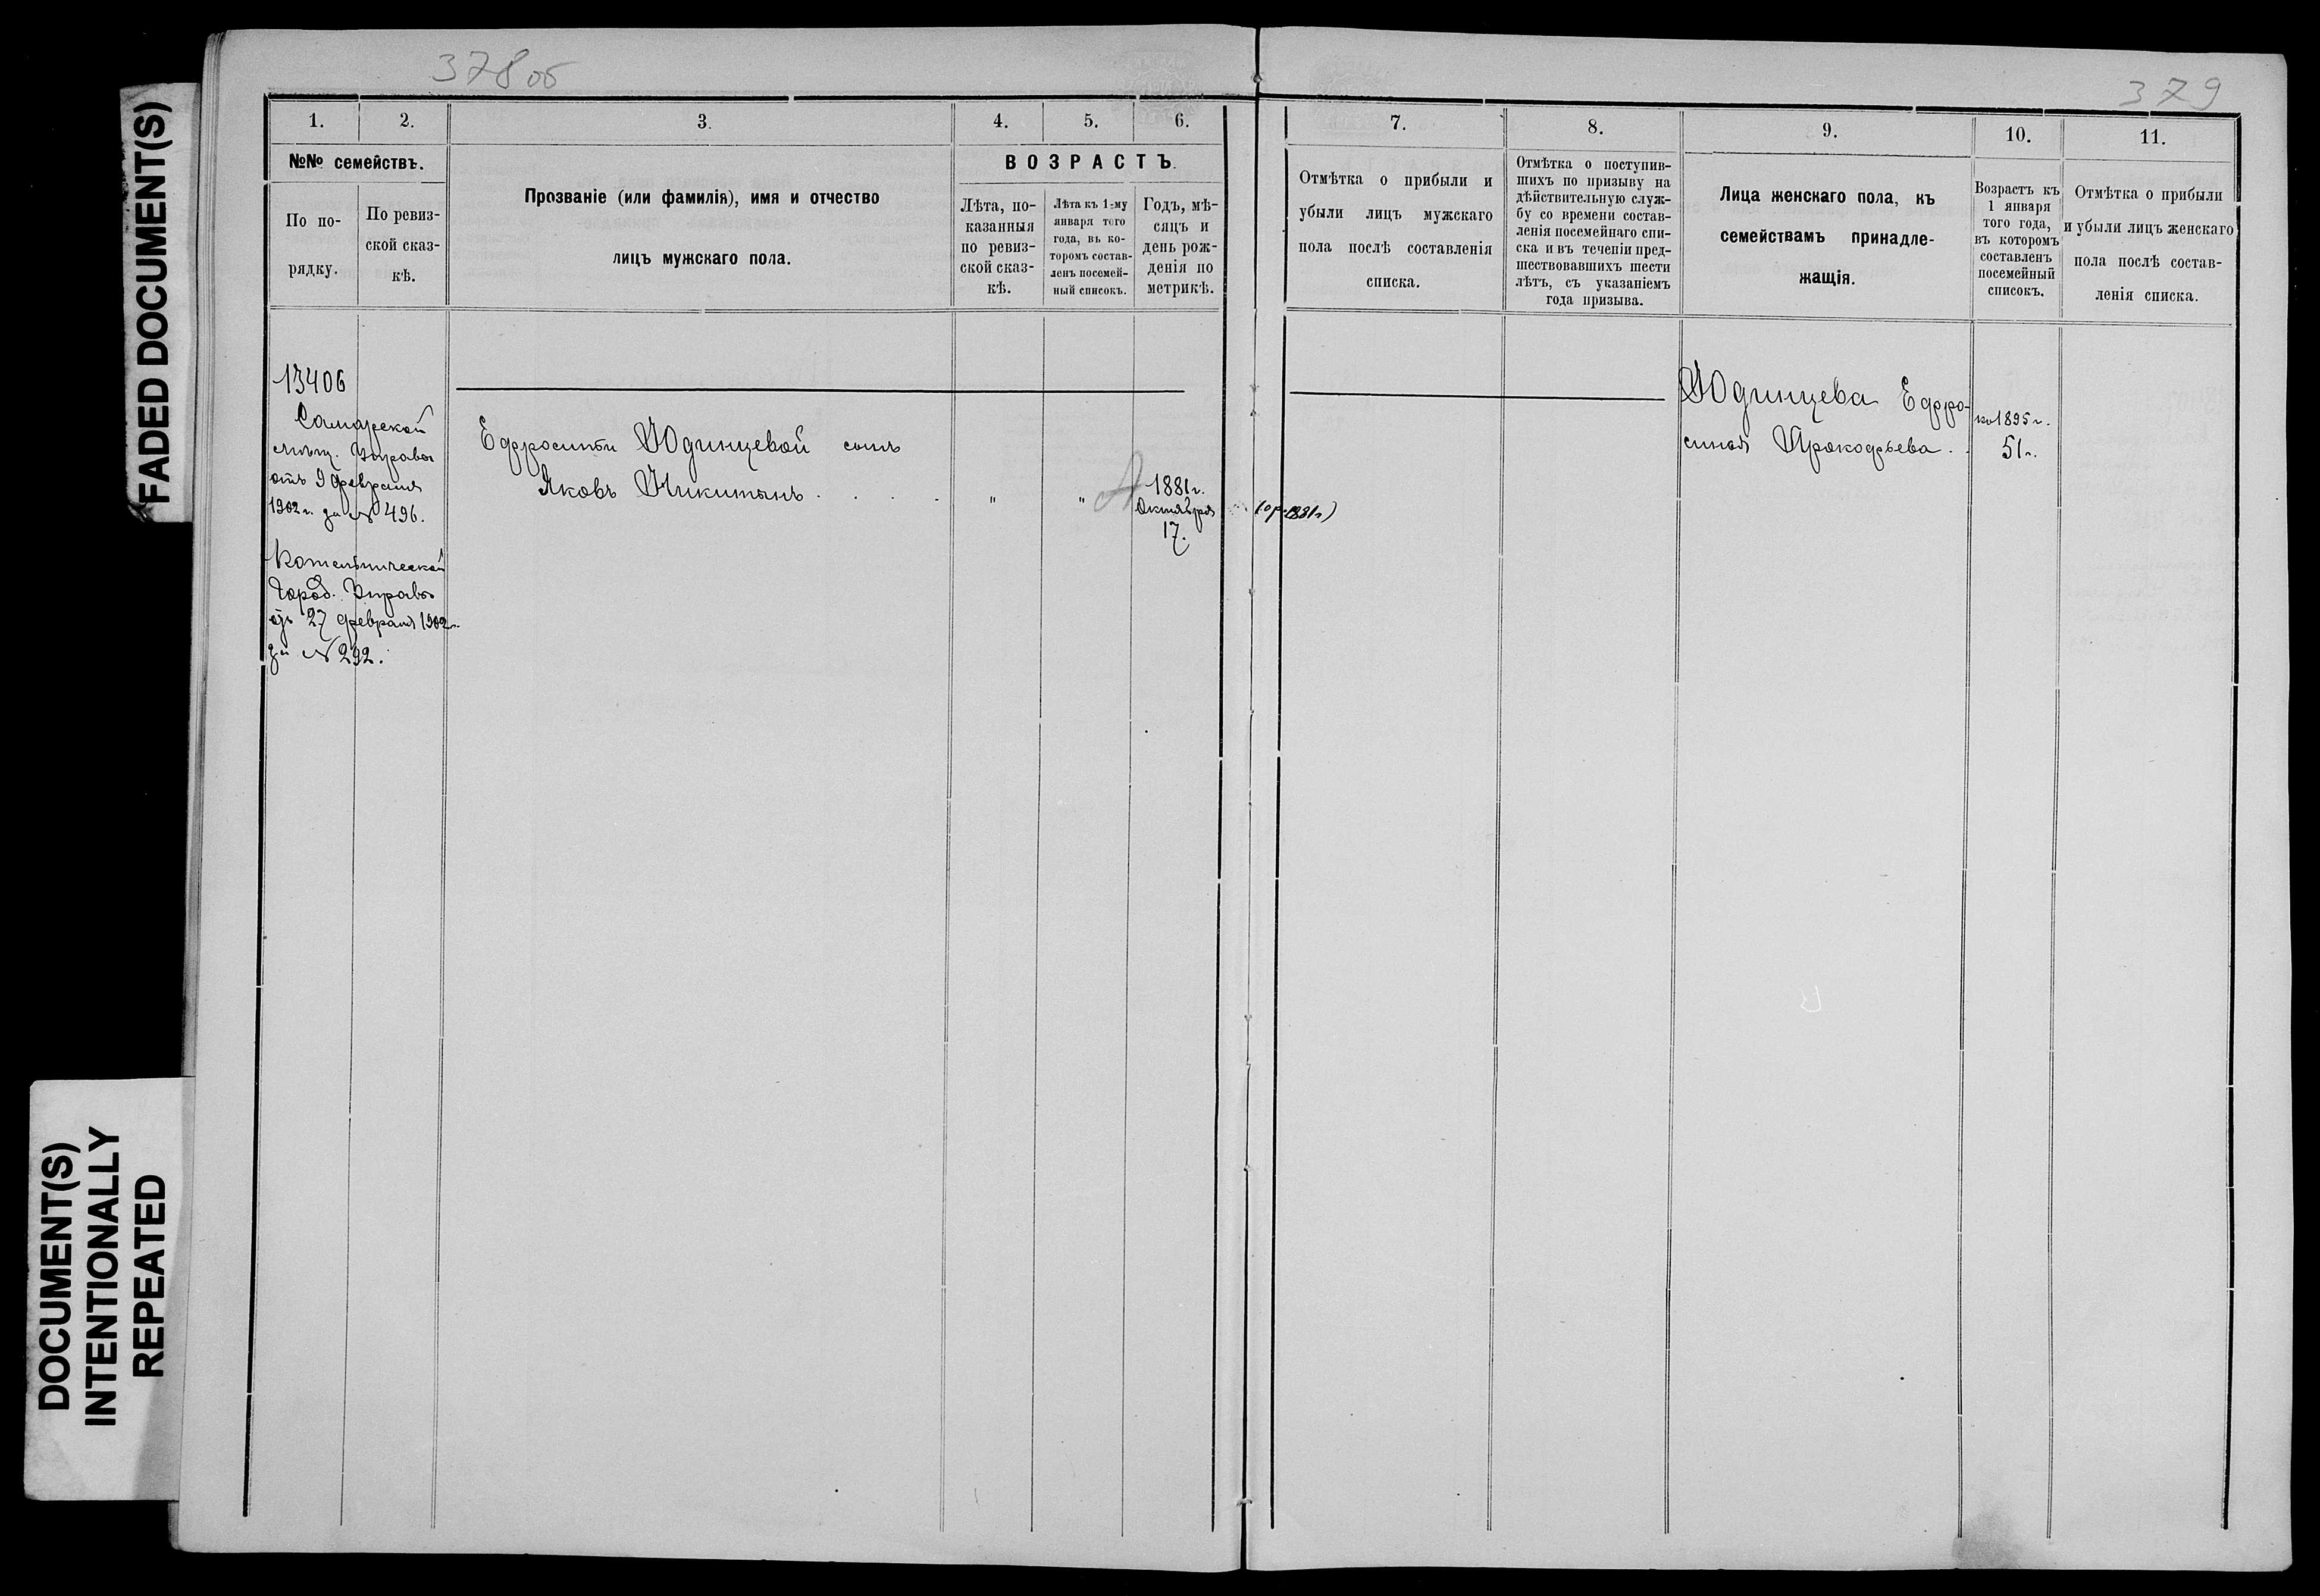 FADED DOCUMENT(S)
DOCUMENT(S)
INTENTIONALLY
REPEATED
378 об
1.
2.
3.
4.
5.
6.
№№ семействъ.
По по-
рядку.
По ревиз-
ской сказ-
кѣ.
Прозваніе (или фамилія), имя и отчество
лицъ мужскаго пола.
ВОЗРАСТЪ.
Лѣта, по-
казанныя
по ревиз-
ской сказ-
кѣ.
Лѣта къ 1-му
января того
года, въ ко-
торомъ состав-
ленъ посемей-
ный списокъ.
Годъ, мѣ-
сяцъ и
день рож-
денія по
метрикѣ.
13406
Самарской
мѣщ. Управы
отъ 9 февраля
1902 г. за № 496.
Котельнической
Город. Управы
отъ 27 февраля 1902 г.
за № 292.
Ефросиніи Юдинцевой сынъ
Яковъ Никитинъ . . . .
" "
1881 г.
Октября
17.
379
7.
8.
9.
10.
11.
Отмѣтка о прибыли и
убыли лицъ мужскаго
пола послѣ составленія
списка.
Отмѣтка о поступив-
шихъ по призыву на
дѣйствительную служ-
бу со времени состав-
ленія посемейнаго спи-
ска и въ теченіи пред-
шествовавшихъ шести
лѣтъ, съ указаніемъ
года призыва.
Лица женскаго пола, къ
семействамъ принадле-
жащія.
Возрастъ къ
1 января
того года,
въ которомъ
составленъ
посемейный
списокъ.
Отмѣтка о прибыли
и убыли лицъ женскаго
пола послѣ состав-
ленія списка.
1881 г)
Юдинцева Ефро-
синія Прокофьева. .
къ 1895 г.
51 г.